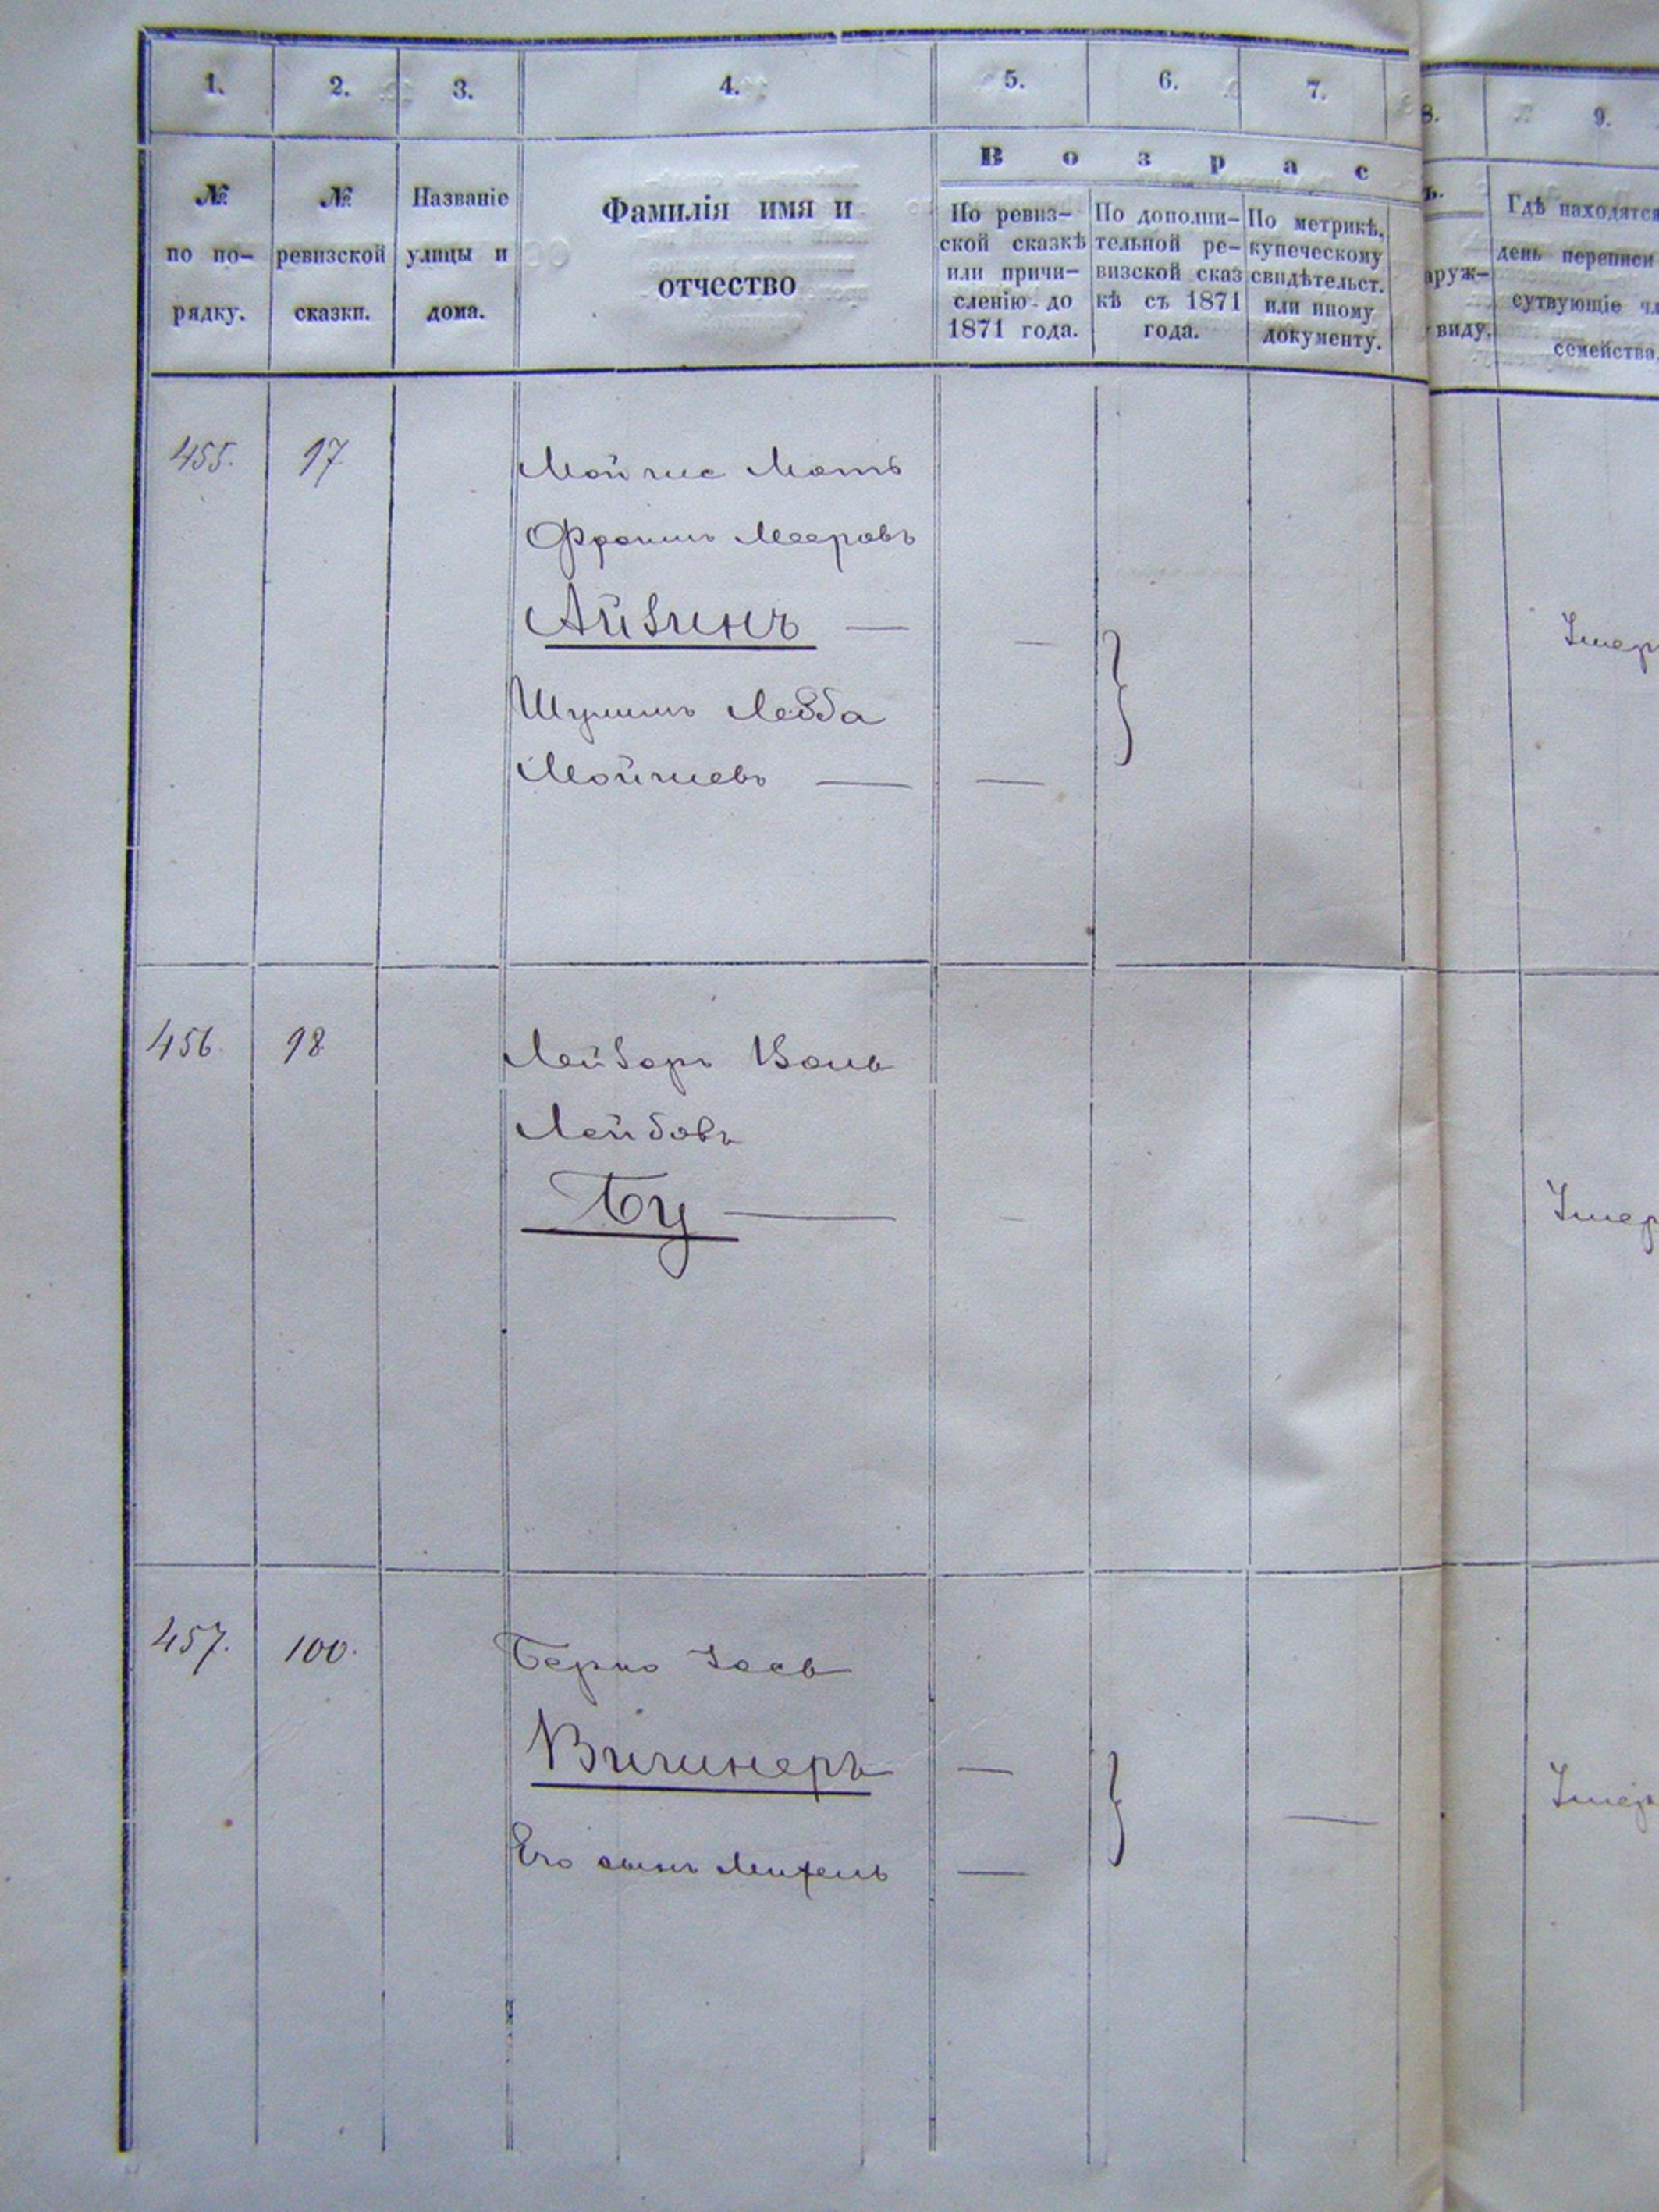 1.
2.
3.
4.
5.
6.
7.
8.
9.
№ по по-
рядку.
№ ревизской
сказки.
Названіе
улицы и
дома.
Фамилія имя и
отчество
Возрас
По ревиз-
ской сказкѣ
или причи-
сленію до
1871 года.
По дополни-
тельной ре-
визской сказ
кѣ съ 1871
года.
По метрикѣ,
купеческому
свидѣтельст.
или иному
документу.
ъ.
аруж-
виду.
Гдѣ находятся
день переписи
сутвующіе чл
семейства,
455.
Мовша Мотъ
Мееровъ
Айзинъ —
Лейба
—
456.
98
Лейзеръ
Лейбовъ
Буц —
Умер
457.
100.
Берко Іось
Вигинеръ —
Его сынъ Михель —
Умер